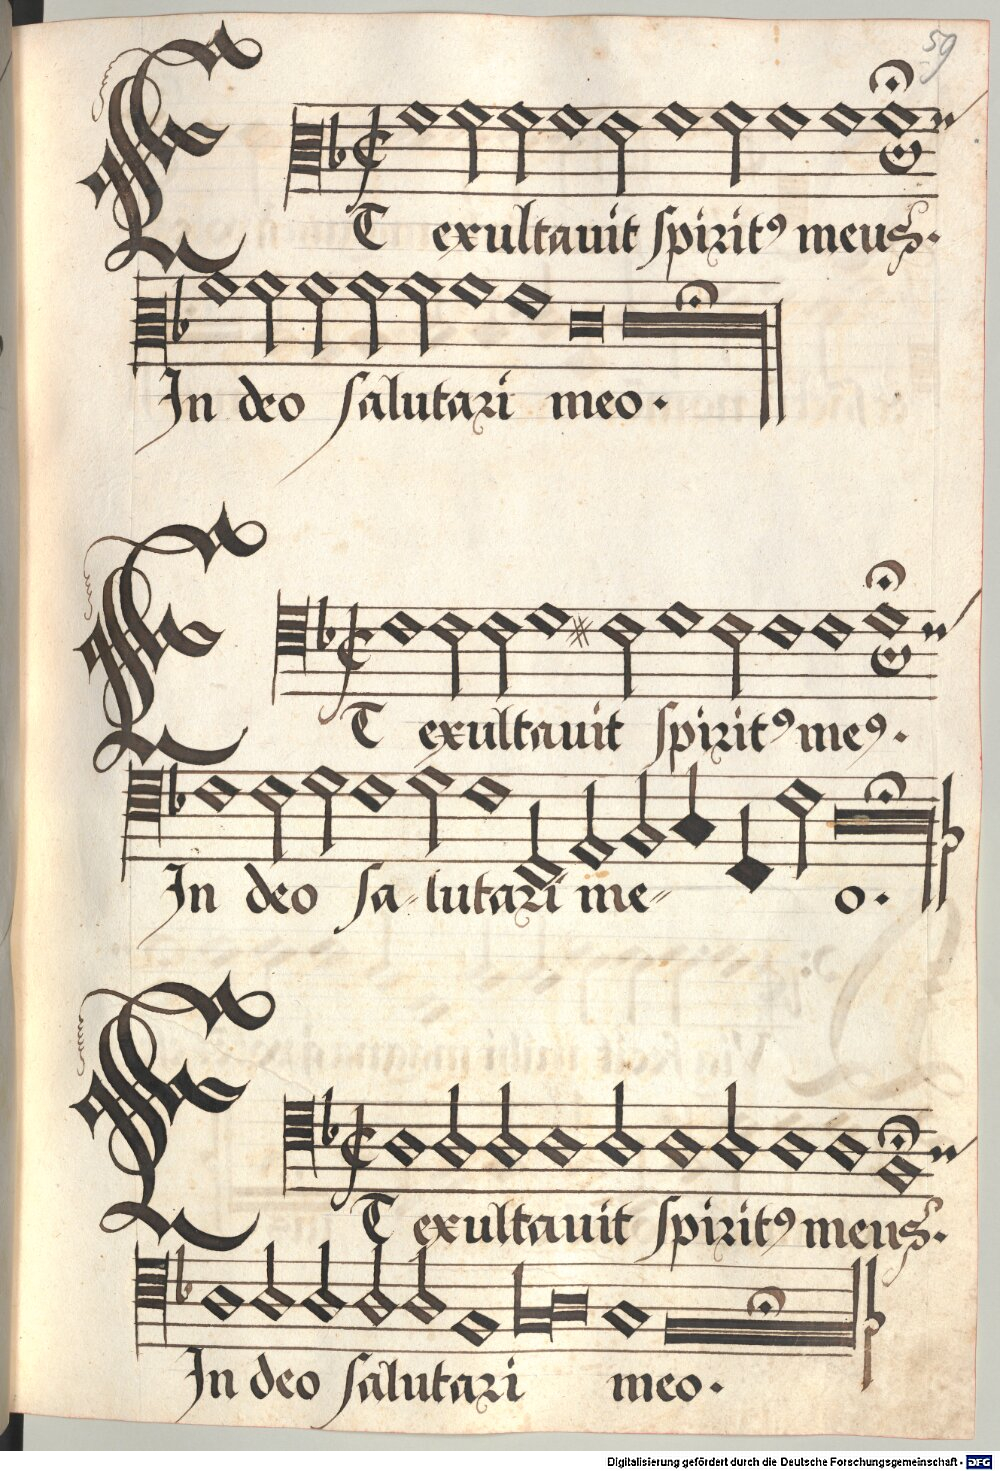 59
ET exultauit spiritꝰ meus.
In deo salutari meo.
ET exultauit spiritꝰ meꝰ.
In deo sa=lutari me= o.
ET exultauit spiritꝰ meus.
In deo salutari meo.
Digitalisierung gefördert durch die Deutsche Forschungsgemeinschaft - DFG